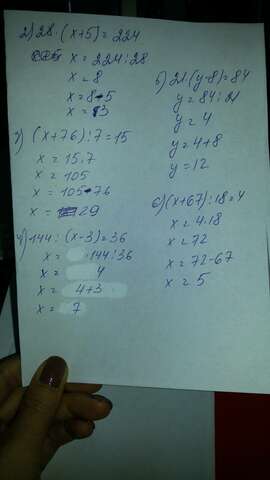 2) 28 (x+5)=224
x = 224:28
x = 8
x = 8-5
x = 3
3) (x+76):7=15
x = 15.7
x = 105
x = 105-76
x = 29
4) 144 : (x-3)=36
x = 144:36
x = 4
x = 4+3
x = 7
5) 21(y-8)=84
y = 84:21
y = 4
y = 4+8
y = 12
6) (x+67):18=4
x = 4.18
x = 72
x = 72-67
x = 5